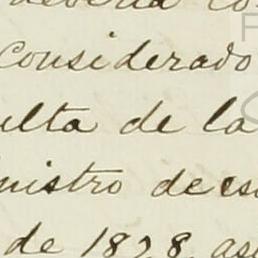 deberia co
Considerado
ulta de la
nistro de es
de 1828, as